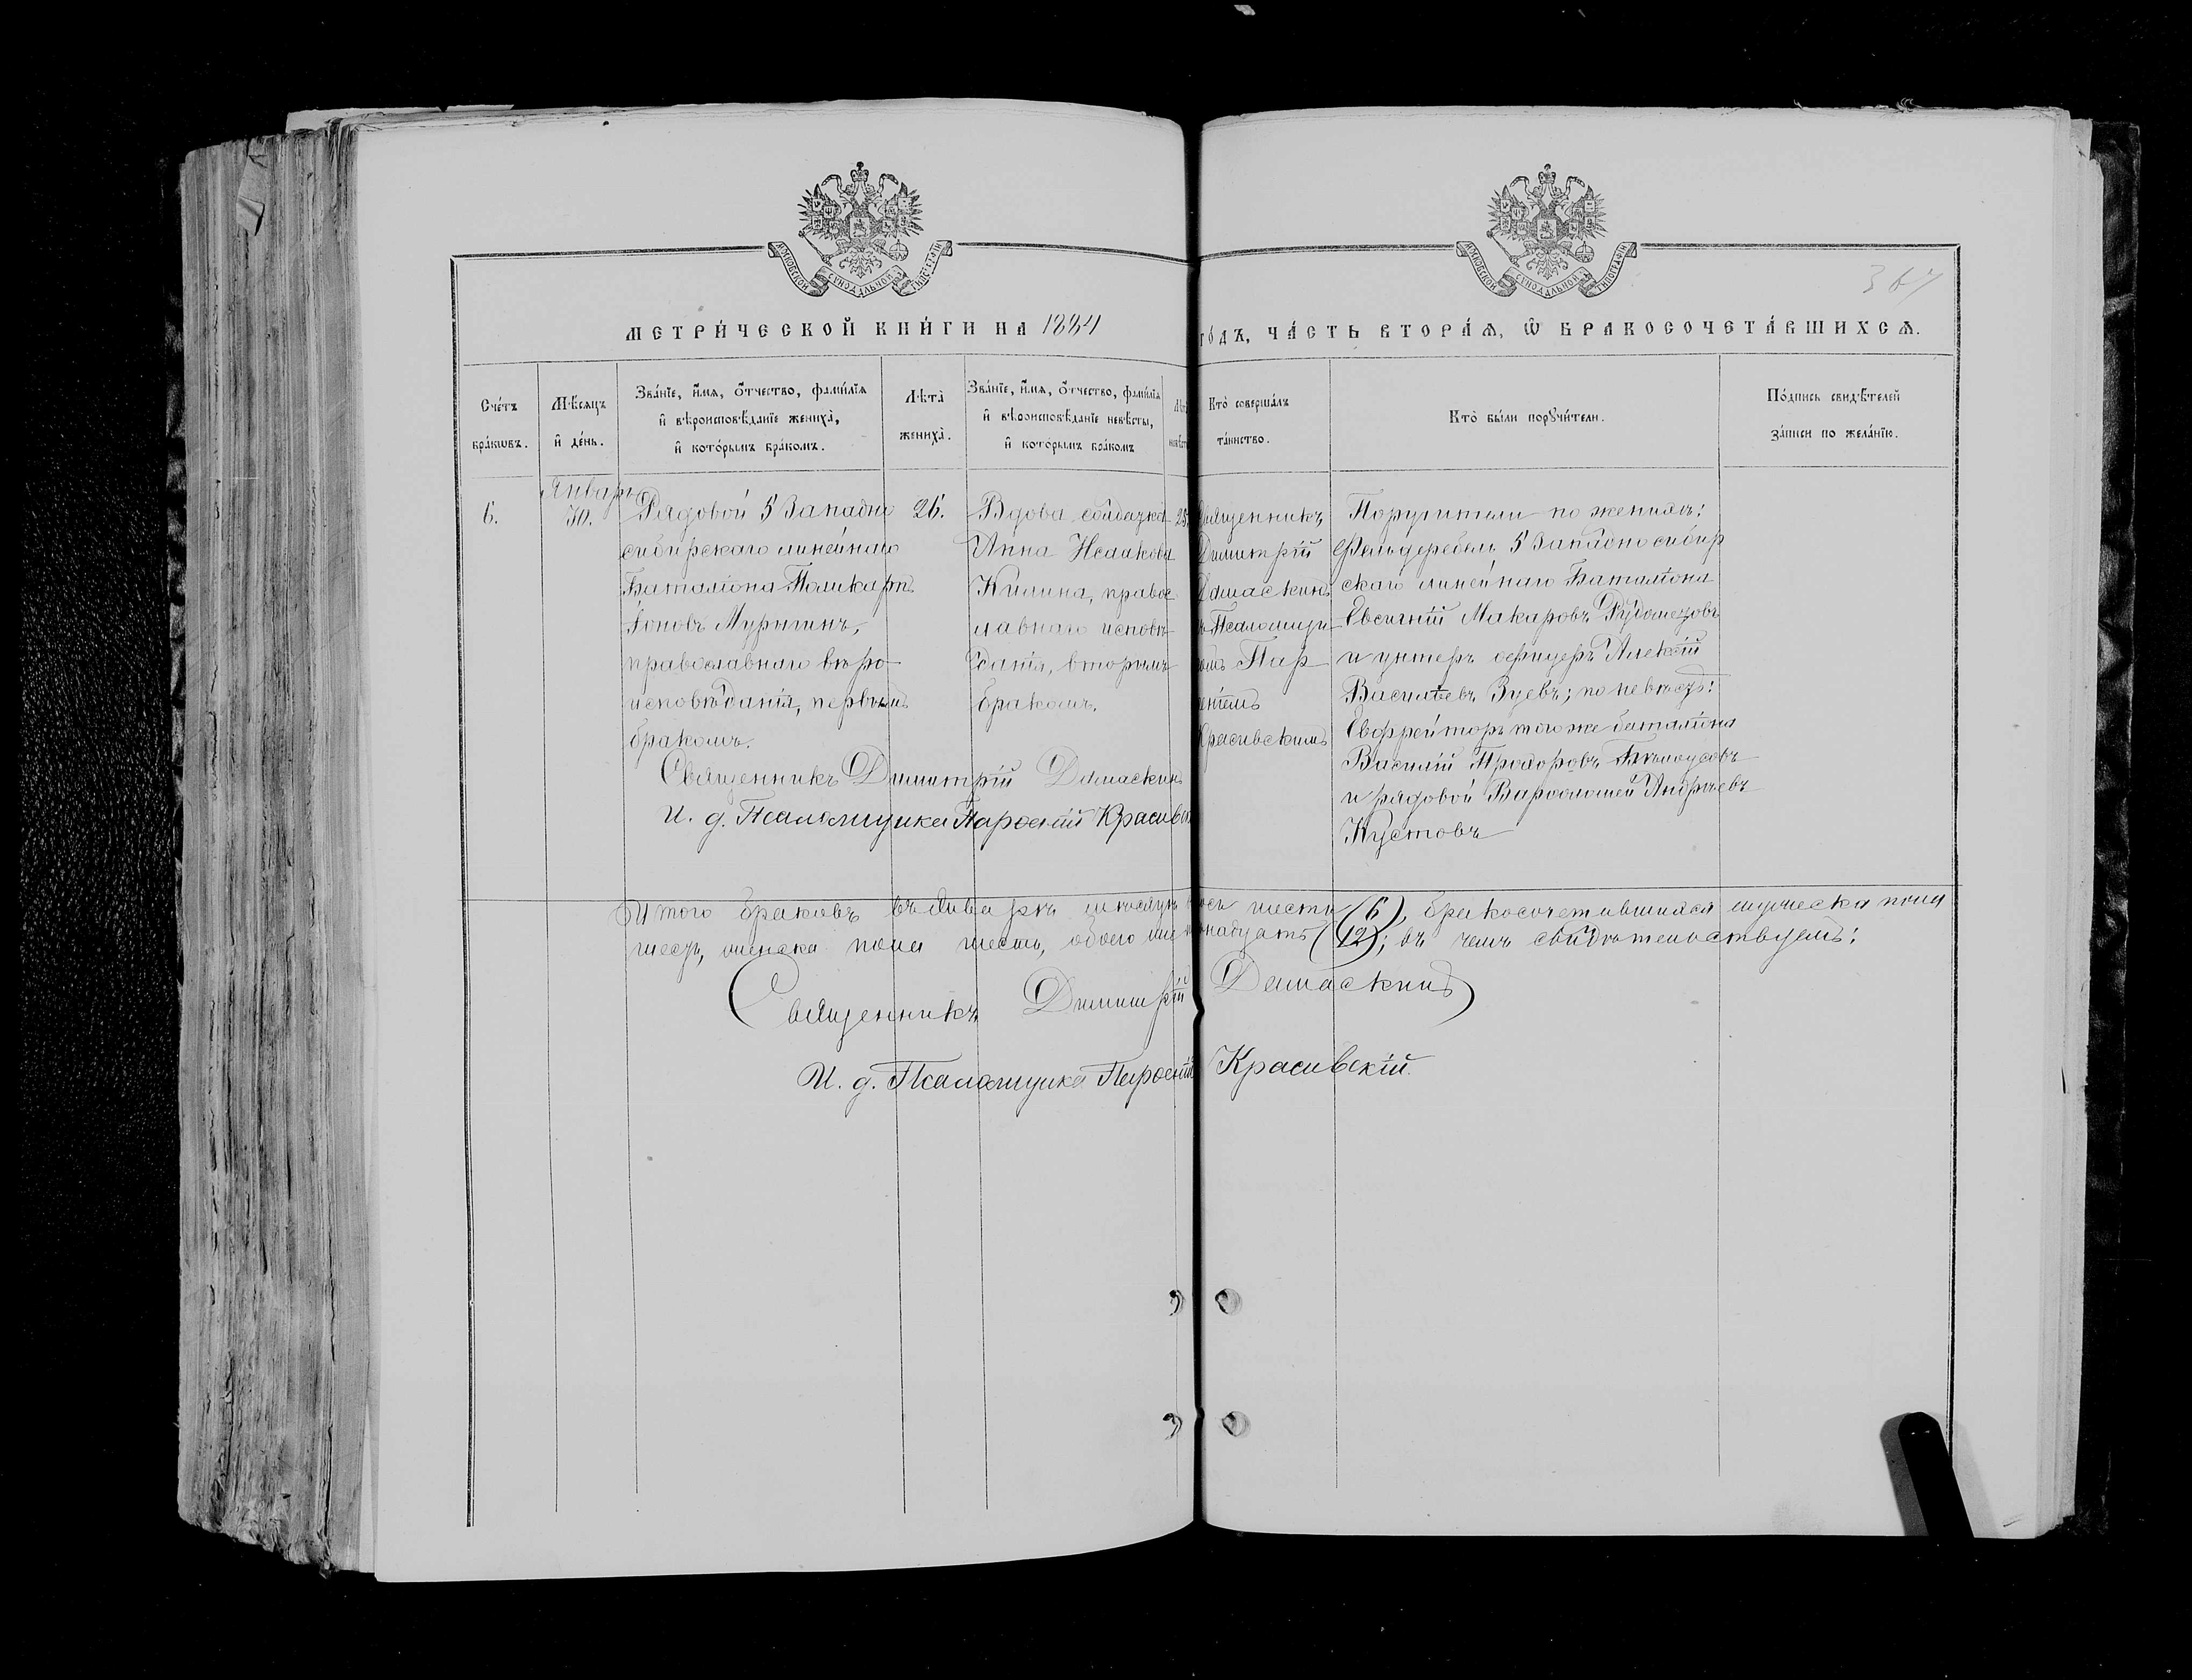 МОСКОВСКОЙ СѴНОДАЛЬНОЙ ТИПОГРАФІИ
МОСКОВСКОЙ СѴНОДАЛЬНОЙ ТИПОГРАФІИ
МЕТРИ́ЧЕСКОЙ КНИ́ГИ НА 1884
ГО́ДЪ, ЧА́СТЬ ВТОРА́Я, Ѡ БРАКОСОЧЕТА́ВШИХСЯ.
Сче́тъ
бра́ковъ.
Мѣ́сяцъ
и де́нь.
Зва́нїе, и́мя, о́тчество, фами́лїя
и вѣроисповѣ́данїе жениха̀,
и кото́рымъ бра́комъ.
Лѣ́та
жениха̀.
Зва́нїе, и́мя, о́тчество, фами́лїя
и вѣроисповѣ́данїе невѣ́сты,
и кото́рымъ бра́комъ
Кто̀ соверша́лъ
та́инство.
Кто̀ бы́ли порꙋчи́тели.
По́дпись свидѣ́телей
за́писи по жела́нїю.
6.
Январь
30.
Рядовой 5 Западно
сибирскаго линейнаго
Баталіона Поликарпъ
Іоновъ Мурыгинъ,
православнаго вѣро-
исповѣданія, первымъ
бракомъ.
26.
Вдова солдатка
Анна Исаакова
Килина, правос
лавнаго исповѣ-
данія, вторымъ
бракомъ.
25.
Священникъ
Димитрій
Дамаскинъ
съ Псаломщи-
комъ Пар
ѳеніемъ
Красивскимъ
Поручители по женихѣ:
Фельдфебель 5 Западно сибир
скаго линейнаго Баталіона
Евсигній Макаровъ Рудометовъ
и унтеръ офицеръ Алексій
Васильевъ Зуевъ; по невѣстѣ:
Евфрейторъ того же баталіона
Василій Прохоровъ Бѣлоусовъ
и рядовой Варѳоломей Андреевъ
Кустовъ
Священникъ Димитрій Дамаскинъ
И. д. Псаломщика Парѳеній Красивскій
Итого браковъ въ Январѣ мѣсяцѣ шесть (6), бракосочетавшихся мужеска пола
шесть, женска пола шесть, обоего двѣнадцать (12); въ чемъ свидѣтельствуемъ:
Священникъ Димитрій Дамаскинъ
И. д. Псаломщика Парѳеній Красивскій